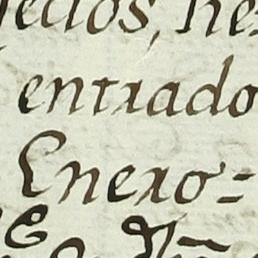 jetos, he
entrado
Enero=